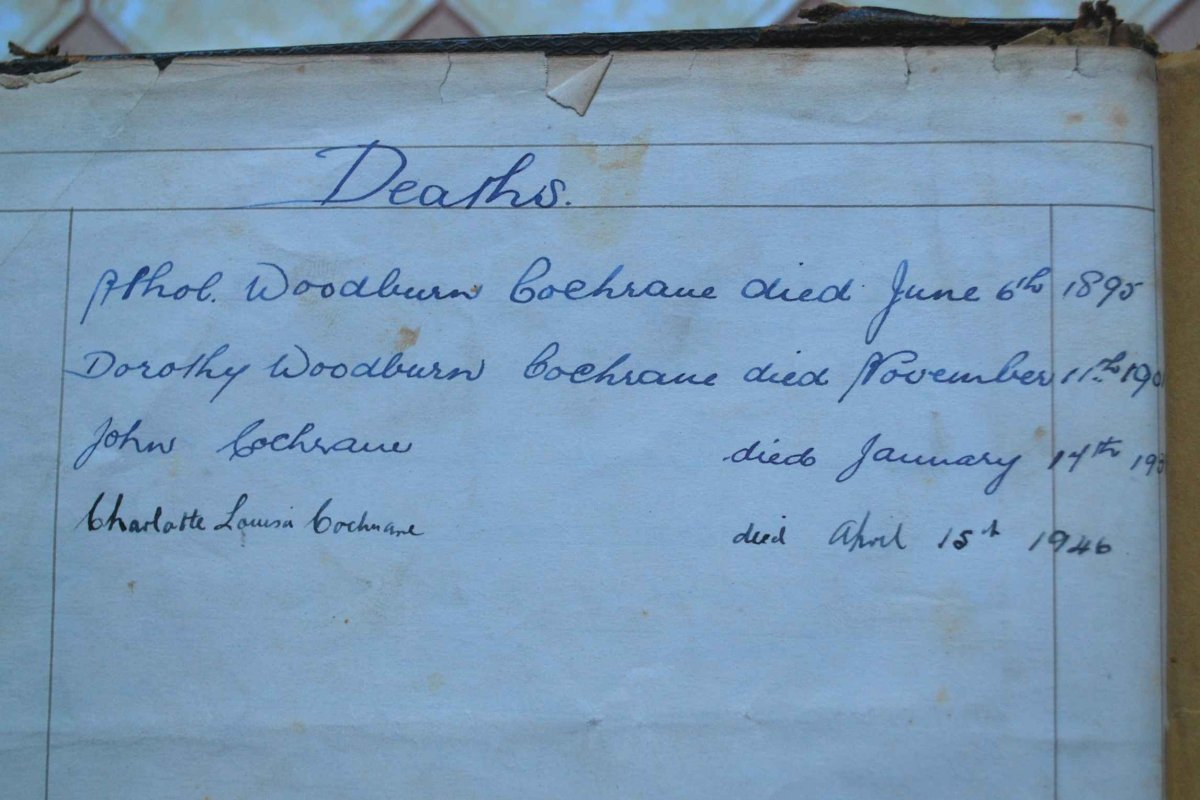 Deaths.
Athol. Woodburn Cochrane died June 6th 1895
Dorothy Woodburn Cochrane died November 11th
John Cochrane died January 14th
Charlotte Louisa Cochrane died April 15th 1946